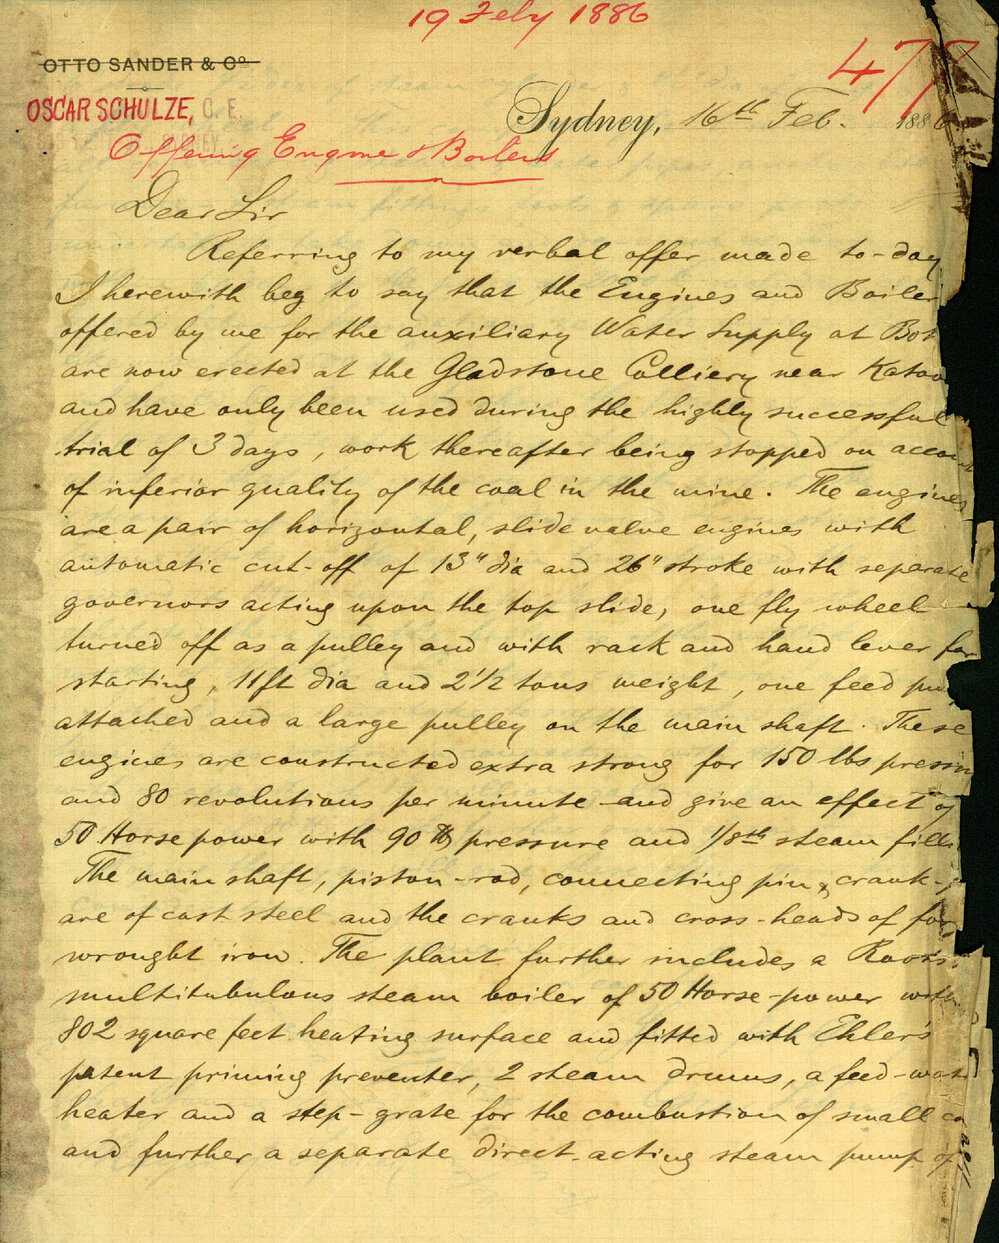 19 Feby 1886
477
OTTO SANDER & Co.
OSCAR SCHULZE, C. E.
Sydney, 16th Feb. 1886
Offering Engine & Boilers
Dear Sir
Referring to my verbal offer made to-day
I herewith beg to say that the Engines and Boiler
offered by me for the auxiliary Water Supply at Bot
are now erected at the Gladstone Colliery near Katoo
and have only been used during the highly successful
trial of 3 days, work thereafter being stopped on accou
of inferior quality of the coal in the mine. The engines
are a pair of horizontal, slide valve engines with
automatic cut-off of 13" dia and 26" stroke with separate
governors acting upon the top slide, one fly wheel
turned off as a pulley and with rack and hand lever for
starting, 11ft dia and 2 1/2 tons weight, one feed pu
attached and a large pulley on the main shaft. These
engines are constructed extra strong for 150 lbs pressu
and 80 revolutions per minute and give an effect of
50 Horse power with 90 lb pressure and 1/8th steam fill
The main shaft, piston-rod, connecting pin, crank-
are of cast steel and the cranks and cross-heads of for
wrought iron. The plant further includes a Root's
multitubulous steam boiler of 50 Horse-power with
802 square feet heating surface and fitted with Ehler's
patent priming preventer, 2 steam drums, a feed-wat
heater and a step-grate for the combustion of small co
and further a separate direct-acting steam pump of